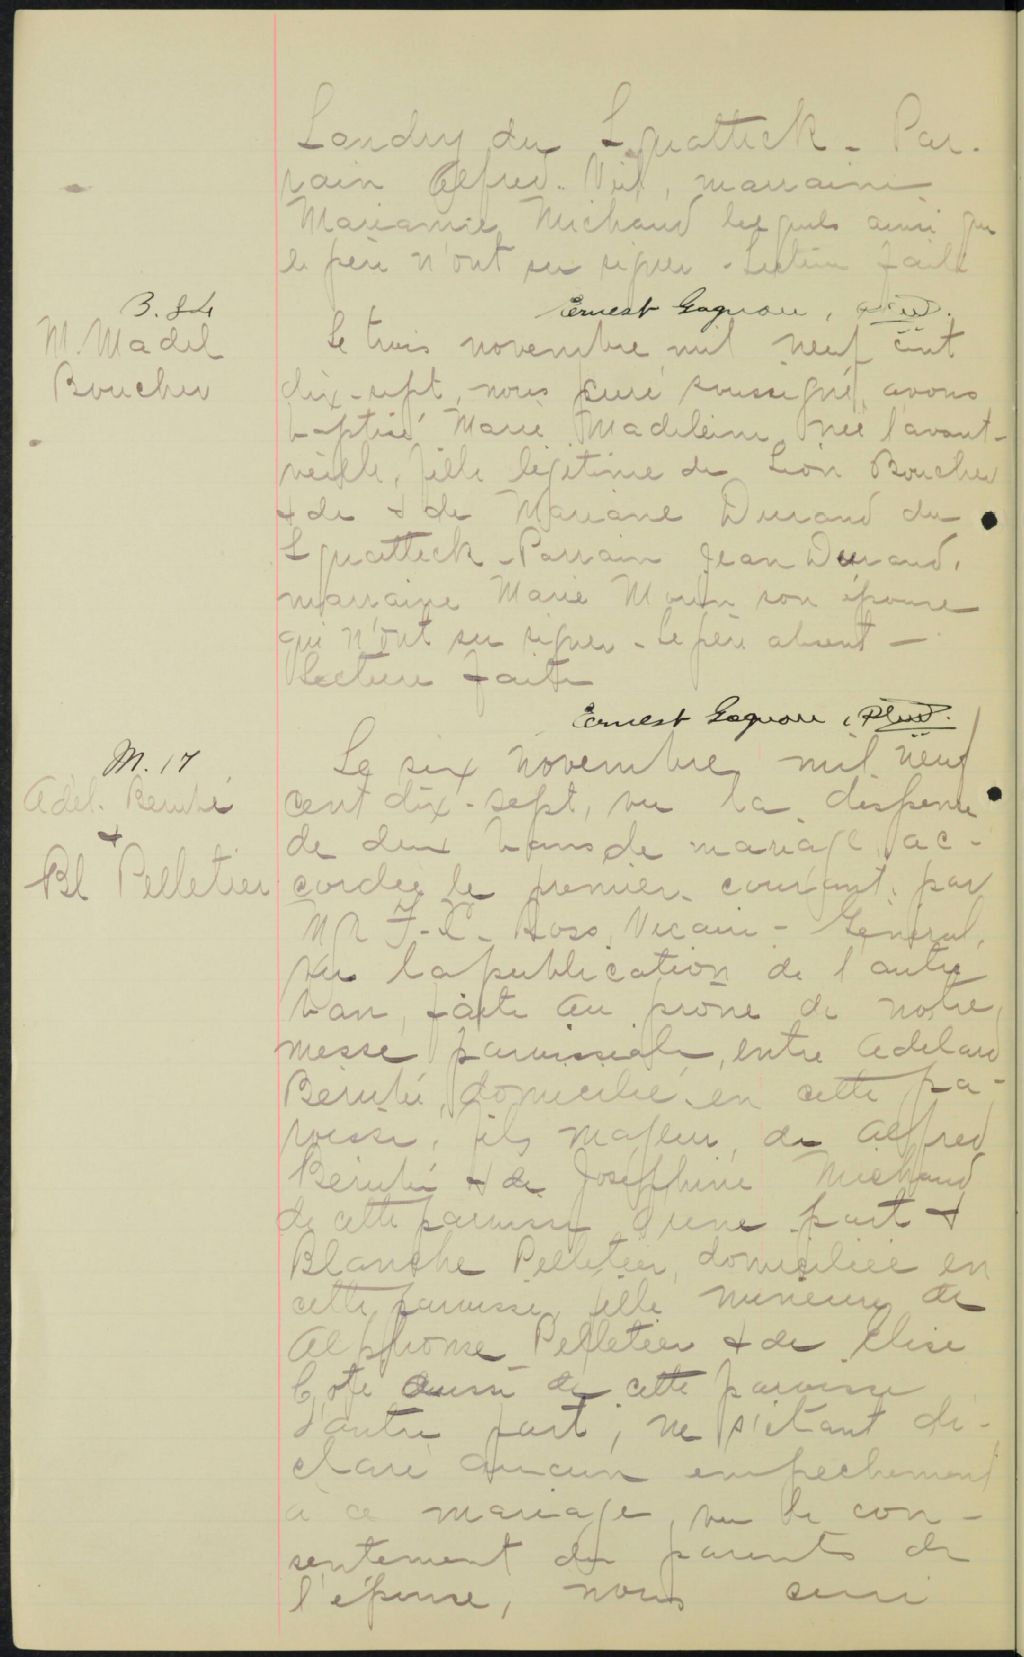 Landry du Squatteck - Par-
rain Alfred Viel, marraine
Marianne Michaud lesquels ainsi que
le père n'ont su signer - Lecture faite
Ernest Gagnon, Ptre
B. 84
M. Madel
Boucher
Le trois novembre mil neuf cent
dix-sept, nous curé soussigné, avons
baptisé Marie Madeleine, née l'avant-
veille, fille légitime de Léon Boucher
& de & de Mariane Durand du
Squatteck - Parrain Jean Durand,
marraine Marie Morin son épouse
qui n'ont su signer - le père absent -
Lecture faite
Ernest Gagnon, Ptre
M. 17
Adél. Bérubé
&
Bl Pelletier
Le six novembre mil neuf
cent dix-sept, vu la dispense
de deux bans de mariage ac-
cordée le premier courant par
Mgr F. X. Ross Vicaire - Général,
vu la publication de l'autre
ban, faite au prône de notre
messe paroissiale, entre Adélard
Bérubé, domicilié en cette pa-
roisse, fils majeur de Alfred
Bérubé & de Joséphine Michaud
de cette paroisse d'une part &
Blanche Pelletier, domiciliée en
cette paroisse, fille mineure de
Alphonse Pelletier & de Elise
Coté aussi de cette paroisse
d'autre part, ne s'étant dé-
claré aucun empechement
à ce mariage, vu le con-
sentement des parents de
l'épouse, nous curé